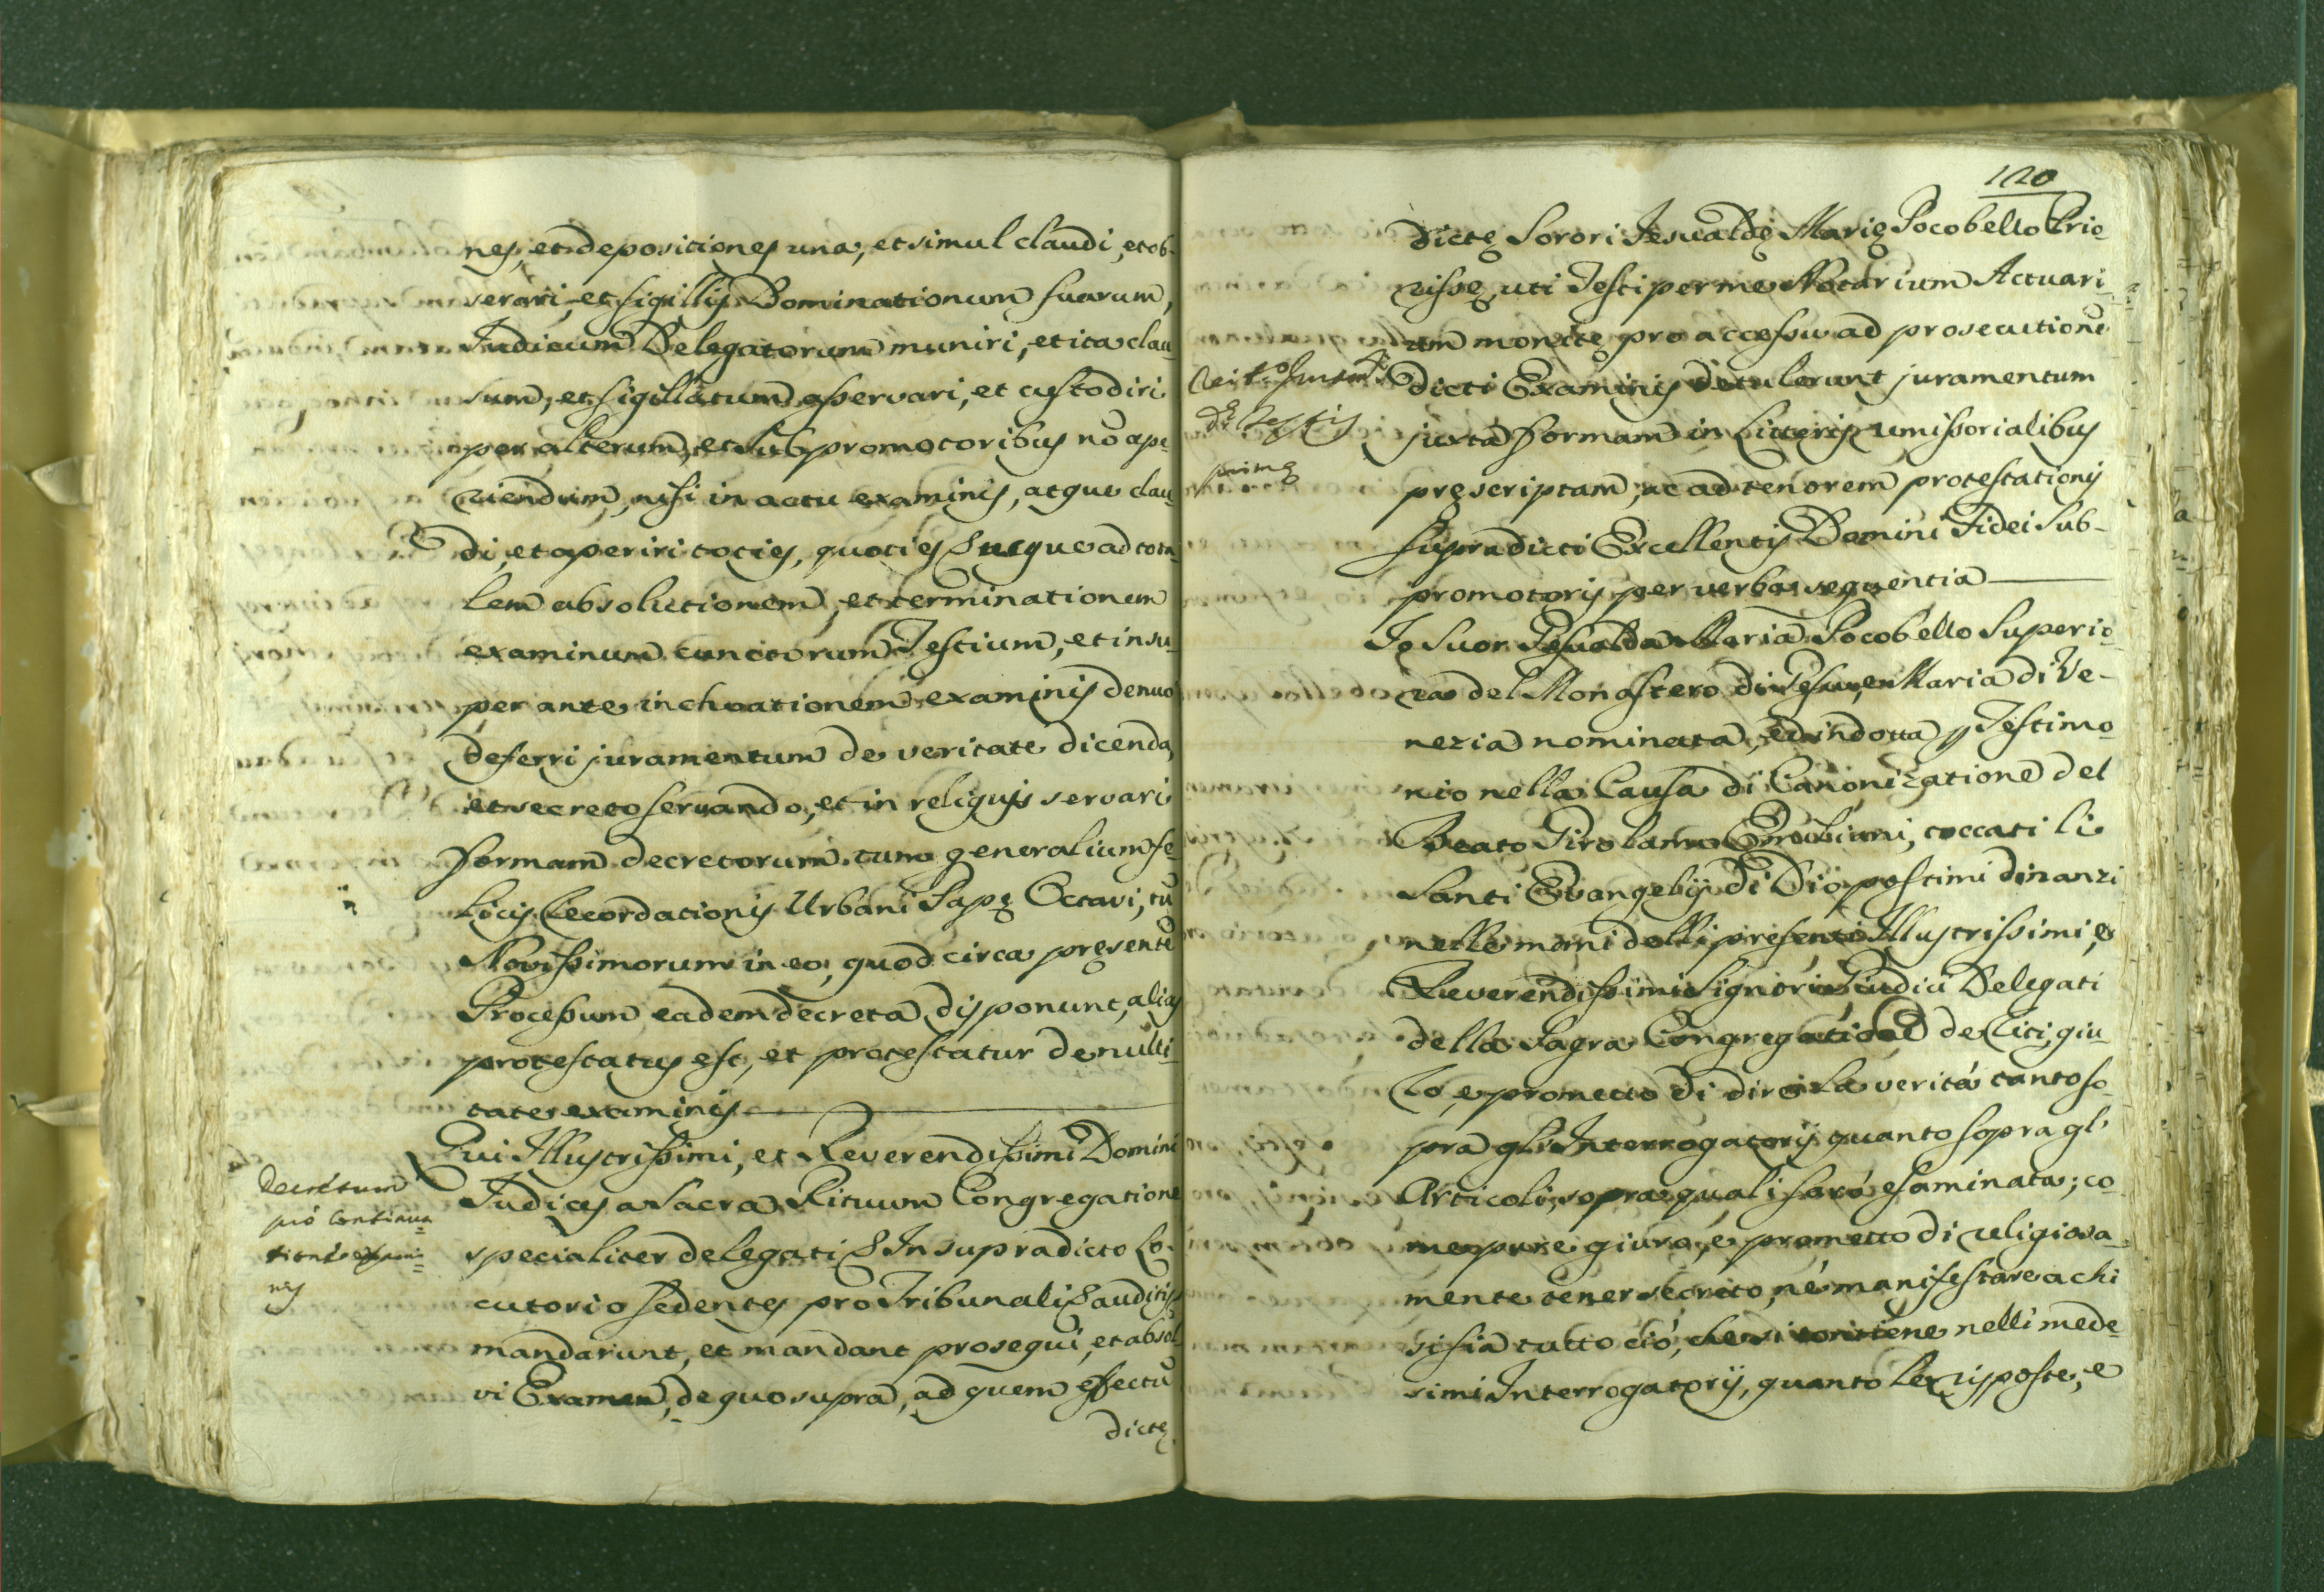 nes, et depositiones una, et simul claudi, et ob-
serari, et sigillis Dominationum suarum,
Judicum Delegatorum muniri, et ita clau-
sum, et sigillatum asservari, et custodiri
per alterum, et subpromotoribus nõ ape-
riendum, nisi in actu examinis, atque clau-
di, et aperiri toties, quoties usque ad tota-
lem absolutionem, et terminationem
examinum cunctorum Testium, et insu-
per ante inchoationem examinis denuo
deferri juramentum de veritate dicenda,
et secreto servando, et in reliquis servari
formam decretorum tum generalium fe-
licis Recordationis Urbani Papę Octavi, tũ
Novissimorum in eo, quod circa presentẽ
Processum eadem decreta disponunt, alias
protestatus est, et protestatur de nulli-
tate examinis
Decretum
pro continua-
tione exami-
nis
Qui Illustrissimi, et Reverendissimi Domini
Judices a Sacra Rituum Congregatione
specialiter delegati & In supradicto Lo-
cutorio sedentes pro Tribunali & auditis
mandarunt, et mandant prosequi, et absol-
vi Examen, de quo supra, ad quem effectũ
dictę
120
dictę Sorori Jesualdę Marię Pocobello Prio-
rissę, uti Testi per me Notarium Actuari-
um monitę pro accessu ad prosecutionẽ
dicti Examinis detulerunt juramentum
Testis
primę
juxta formam in Litteris remissorialibus
pręscriptam, ac ad tenorem protestationis
supradicti Excellentis Domini Fidei Sub-
promotoris per verba sequentia
Io Suor Gesualda Maria Pocobello Superio-
ra del Monastero di Gesu, e Maria di Ve-
nezia nominata, ed indotta p Testimo-
nio nella Causa di Canonizatione del
Beato Girolamo Emiliani, toccati li
Santi Evangelij di Dio postimi dinanzi
nelle mani delli presenti Illustrissimi, e
Reverendissimi Signori Giudici Delegati
della Sagra Congregatione de Riti, giu-
ro, e prometto di dire la verità tanto so-
pra gli Interrogatorij quanto sopra gl'
Articoli, sopra quali sarò esaminata; co-
me pure giuro, e prometto di religiosa-
mente tener secreto, nè manifestare a chi
si sia tutto ciò, che si contiene nelli mede-
simi Interrogatorij, quanto le risposte, e